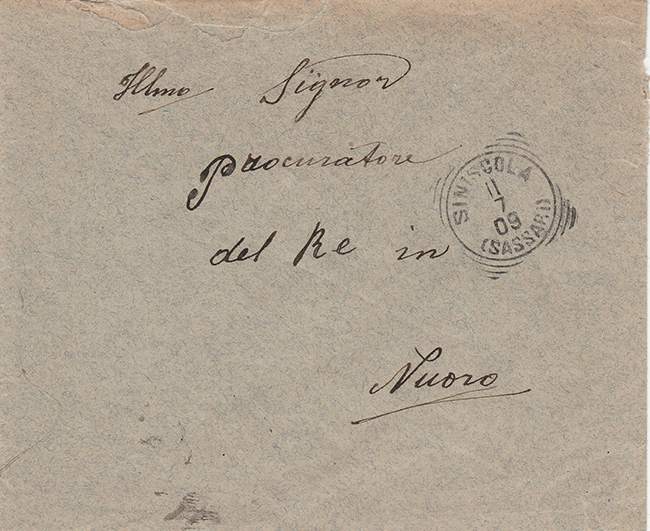 Illmo Signor
Procuratore
del Re in
Nuoro
SINISCOLA
11
7
09
(SASSARI)